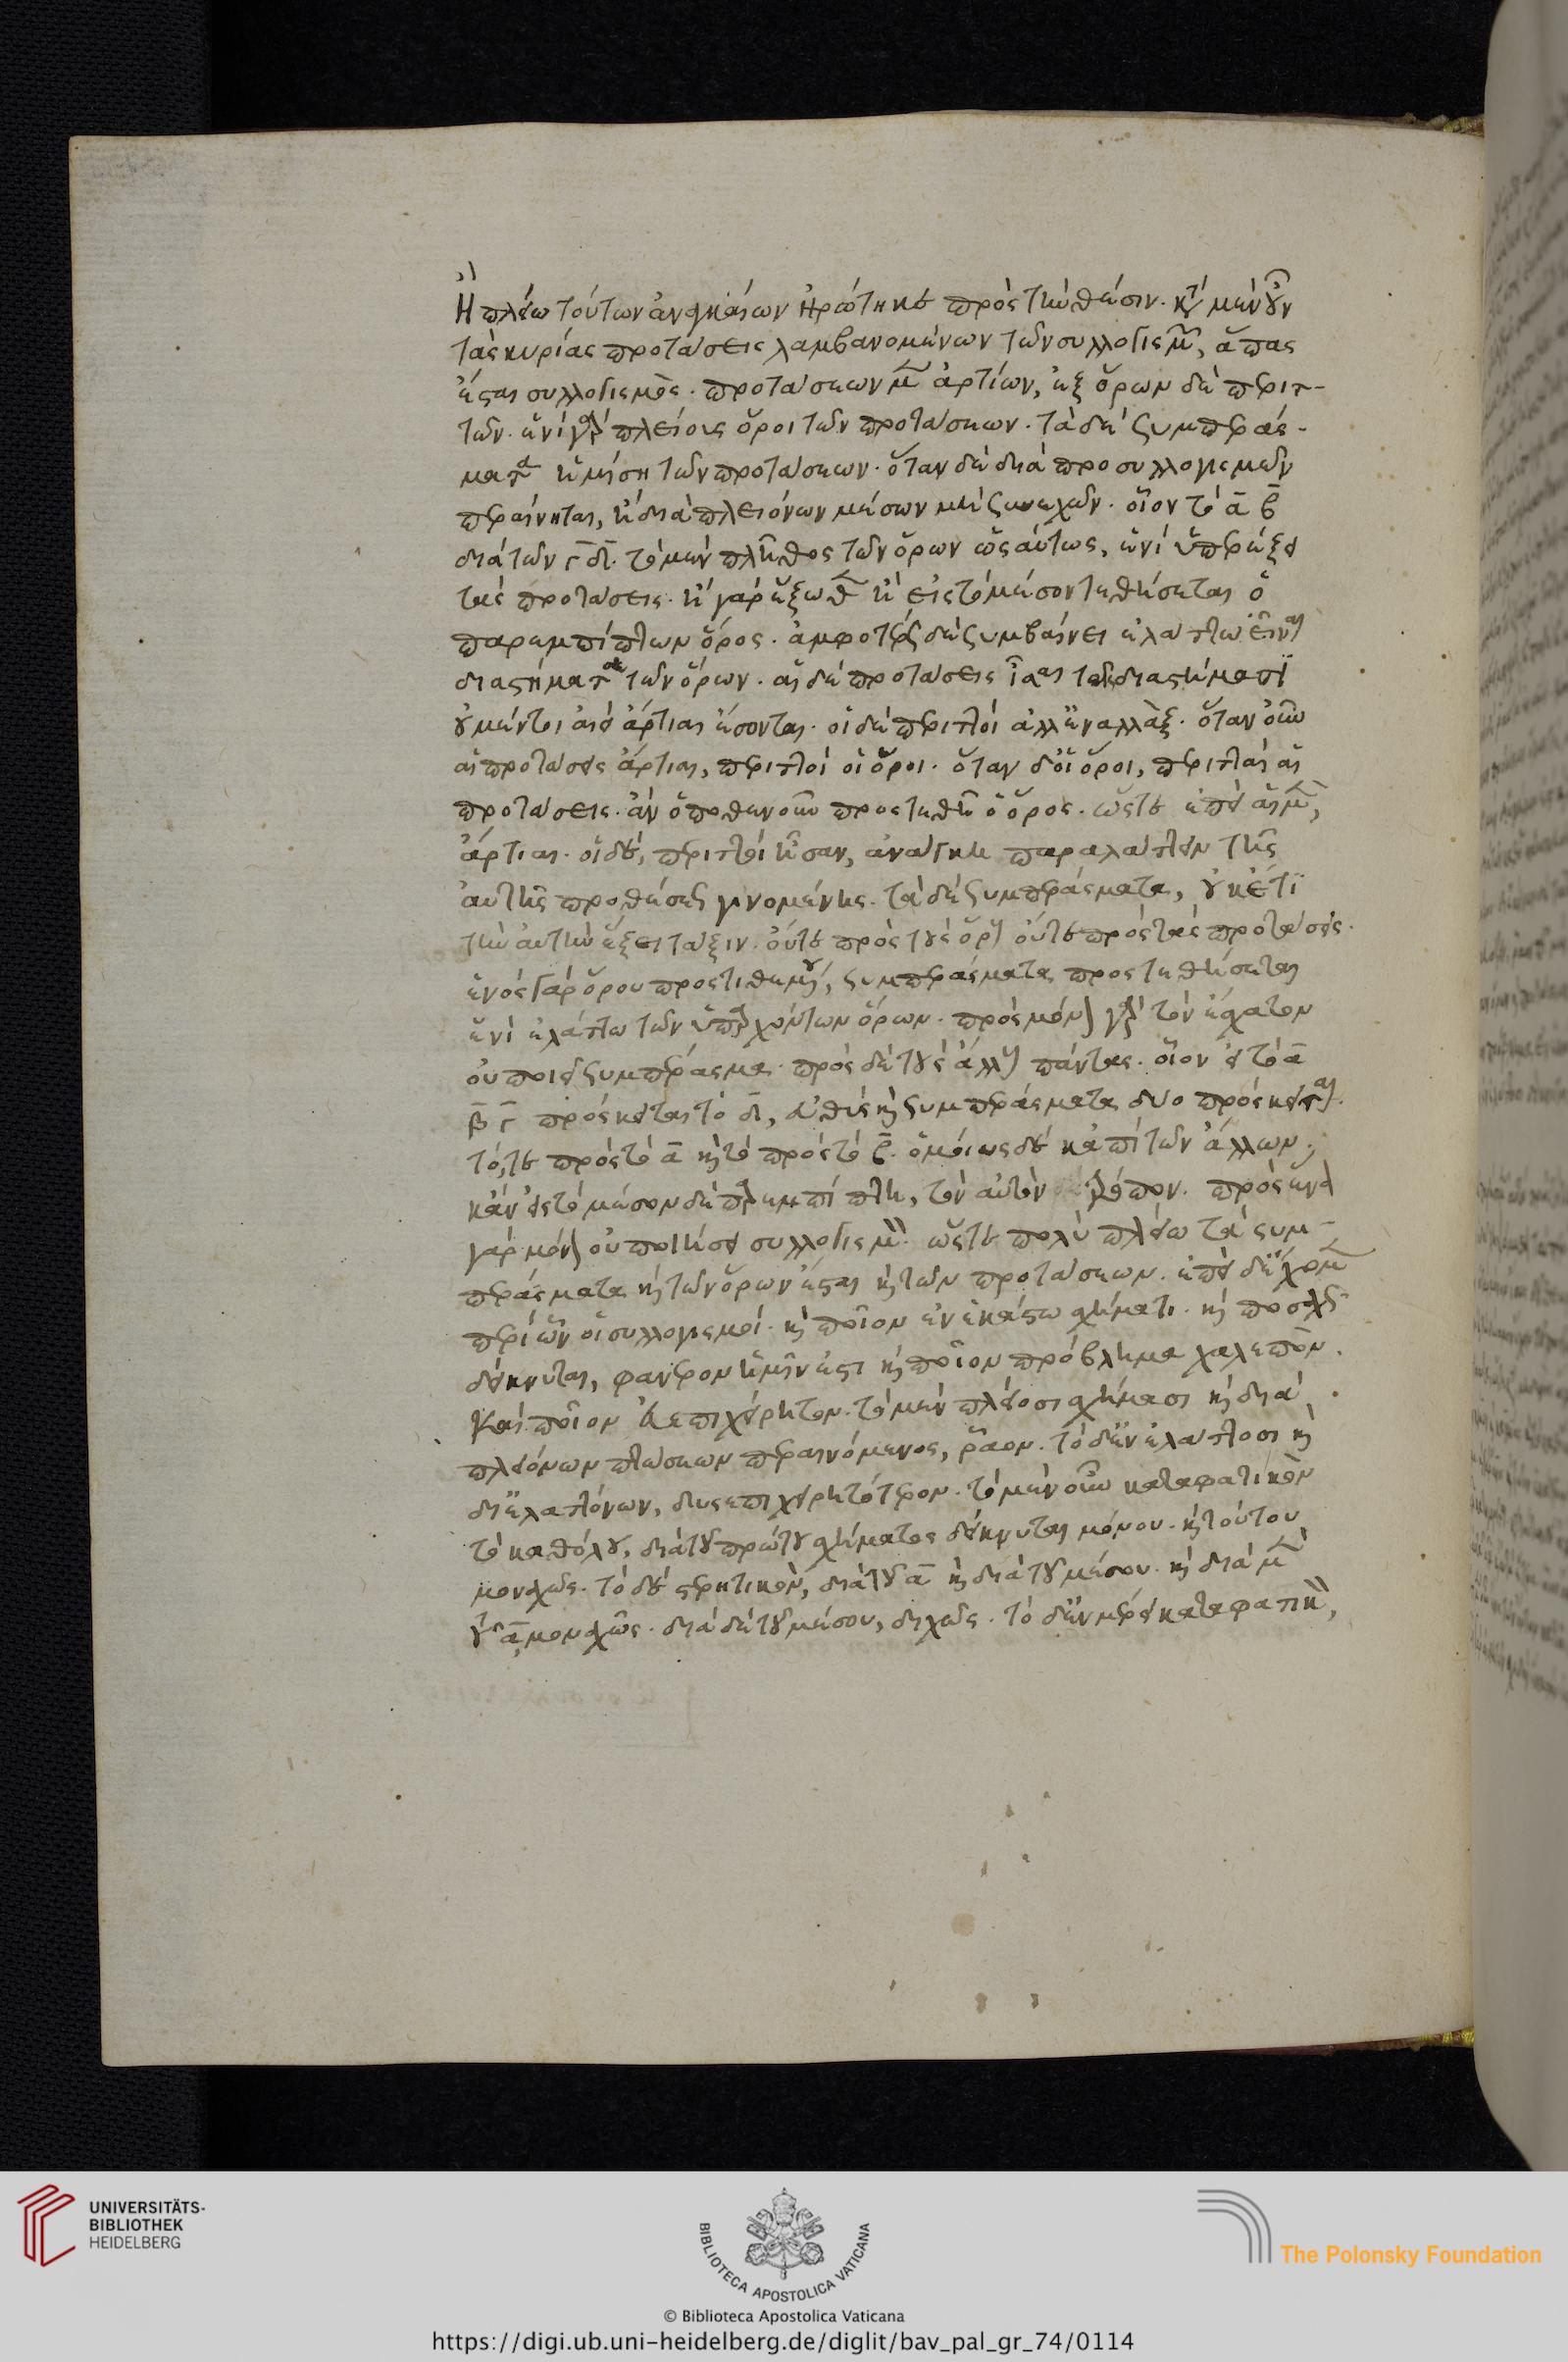 Ἢ πλείω τούτων ἀναγκαίων ἠρώτηκε πρὸς τὴν θέσιν. κατὰ μὲν οὖν
τὰς κυρίας προτάσεις λαμβανομένων τῶν συλλογισμῶν, ἅπας
ἔσται συλλογισμὸς. προτάσεων μὲν ἀρτίων, ἐξ ὅρων δὲ περιτ-
τῶν. ἑνὶ γὰρ πλείους ὅροι τῶν προτάσεων. τὰ δὲ συμπεράσ-
ματα ἡμίση τῶν προτάσεων. ὅταν δὲ διὰ προσυλλογισμῶν
περαίνηται, ἢ διὰ πλειόνων μέσων μὴ συνεχῶν. οἷον τὸ α β
διὰ τῶν γ δ. τὸ μὲν πλῆθος τῶν ὅρων ὡσαύτως, ἑνὶ ὑπερέξει
τὰς προτάσεις. ἢ γὰρ ἔξωθεν ἢ εἰς τὸ μέσον τεθήσεται ὁ
παρεμπίπτων ὅρος. ἀμφοτέρως δὲ συμβαίνει ἐλάττω εἶναι
διαστήματα τῶν ὅρων. αἱ δὲ προτάσεις ἴσαι τοῖς διαστήμασι
οὐ μέντοι ἀεὶ ἄρτιαι ἔσονται. οἱ δὲ περιττοὶ ἀλλ' ἐναλλὰξ. ὅταν οὖν
αἱ προτάσεις ἄρτιαι, περιττοὶ οἱ ὅροι. ὅταν δ' οἱ ὅροι, περιτταὶ αἱ
προτάσεις. ἂν ὁποθενοῦν προστεθῆ ὁ ὅρος. ὥστε ἐπεὶ αἱ μὲν,
ἄρτιαι. οἱ δὲ, περιττοὶ ἦσαν, ἀνάγκη παραλάττειν τῆς
αὐτῆς προσθέσεως γινομένης. τὰ δὲ συμπεράσματα, οὐκέτι
τὴν αὐτὴν ἕξει τάξιν. οὔτε πρὸς τοὺς ὅρους οὔτε πρὸς τὰς προτάσεις.
ἑνὸς γὰρ ὅρου προστιθεμένου, συμπεράσματα προστεθήσεται
ἑνὶ ἐλάττω τῶν ὑπαρχόντων ὅρων. πρὸς μόνον γὰρ τὸν ἔσχατον
οὐ ποιεῖ συμπέρασμα. πρὸς δὲ τοὺς ἄλλους πάντας. οἷον εἰ τὸ α
β γ πρόσκειται τὸ δ, εὐθὺς καὶ συμπεράσματα δύο πρόσκειται.
τό, τε πρὸς τὸ α καὶ τὸ πρὸς τὸ β. ὁμοίως δὲ κἀπὶ τῶν ἄλλων.
κἂν εἰς τὸ μέσον δὲ παρεμπίπτη, τὸν αὐτὸν τρόπον. πρὸς ἕνα
γὰρ μόνον οὐ ποιήσει συλλογισμὸν. ὥστε πολὺ πλείω τὰ συμ-
περάσματα καὶ τῶν ὅρων ἔσται καὶ τῶν προτάσεων. ἐπεὶ δ' ἔχομεν
περὶ ὧν οἱ συλλογισμοὶ. καὶ ποῖον ἐν ἑκάστω σχήματι. καὶ ποσαχῶς
δείκνυται, φανερὸν ἡμῖν ἐστι καὶ ποῖον πρόβλημα χαλεπὸν.
καὶ ποῖον εὐεπιχείρητον. τὸ μὲν πλείοσι σχήμασι καὶ διὰ
πλειόνων πτώσεων περαινόμενος, ῥᾶον. τὸ δ' ἐν ἐλάττοσι καὶ
δι' ἐλαττόνων, δυσεπιχειρητότερον. τὸ μὲν οὖν καταφατικὸν
τὸ καθόλου, διὰ τοῦ πρώτου σχήματος δείκνυται μόνου. καὶ τούτου
μοναχῶς. τὸ δὲ στερητικὸν, διὰ τοῦ α καὶ διὰ τοῦ μέσου. καὶ διὰ μὲν
τοῦ α, μοναχῶς. διὰ δὲ τοῦ μέσου, διχῶς. τὸ δ' ἐν μέρει καταφατικὸν,
UNIVERSITÄTS-
BIBLIOTHEK
HEIDELBERG
BIBLIOTECA APOSTOLICA VATICANA
The Polonsky Foundation
© Biblioteca Apostolica Vaticana
https://digi.ub.uni-heidelberg.de/diglit/bav_pal_gr_74/0114